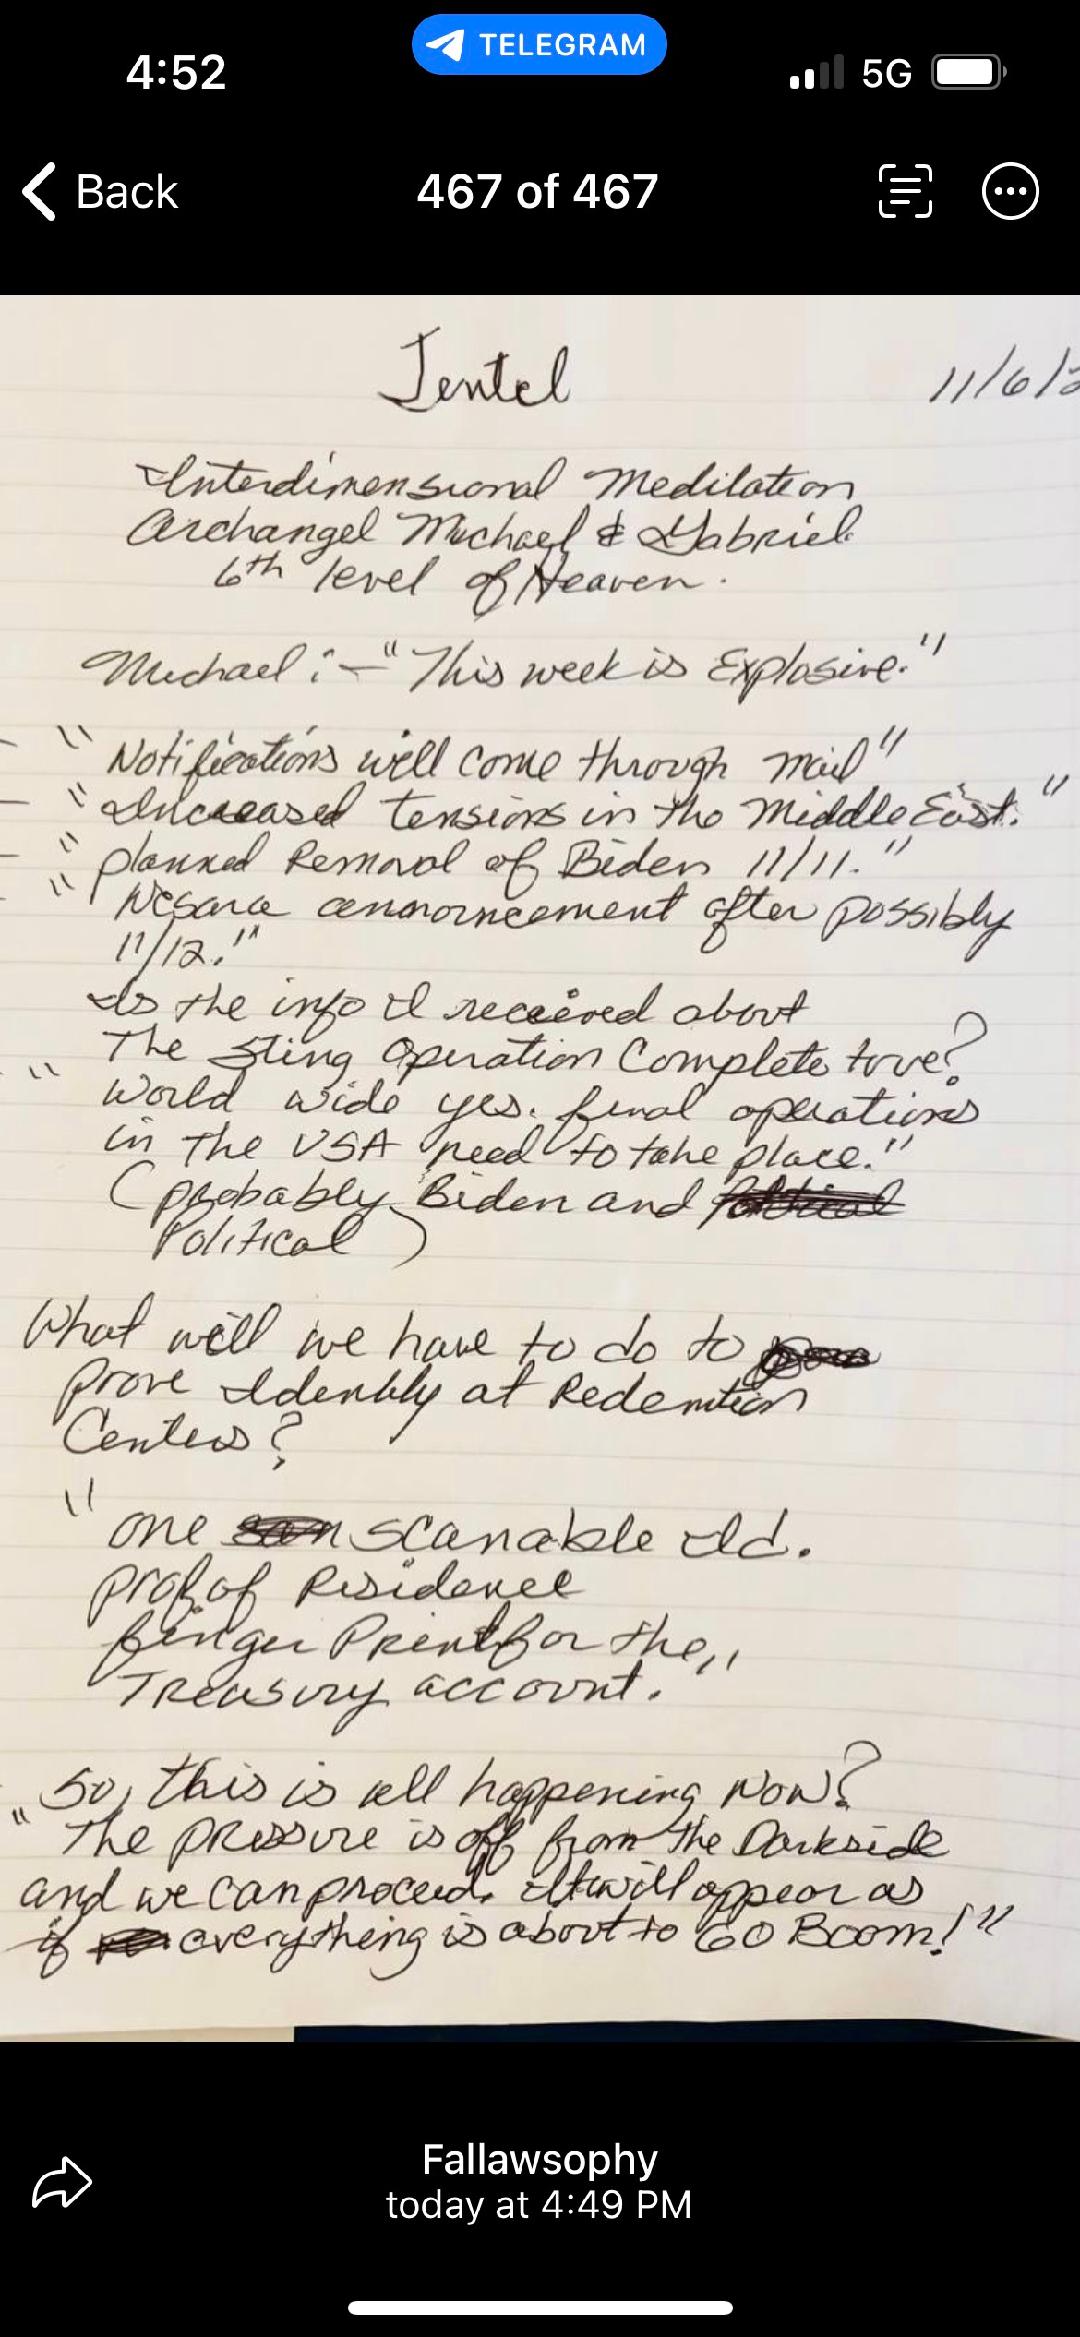 4:52
TELEGRAM
5G
Back
467 of 467
Jentel
11/6/2
Interdimensional Meditation
Archangel Michael & Gabriel
6th level of Heaven.
Michael: - "This week is Explosive."
"Notifications will come through mail"
"Increased tensions in the Middle East."
"planned Removal of Biden 11/11."
"Nesara announcement after possibly
11/12."
Is the info I received about
The Sting Operation Complete true?
"World wide yes. final operations
in the USA need to take place."
(probably Biden and
Political)
What will we have to do to
prove Identity at Redemtion
Centers?
"one scanable Id.
prof of Residence
finger Print for the
Treasury account."
So, this is all happening Now?
"The pressure is off from the Darkside
and we can proceed. It will appear as
if everything is about to GO BOOM!"
Fallawsophy
today at 4:49 PM